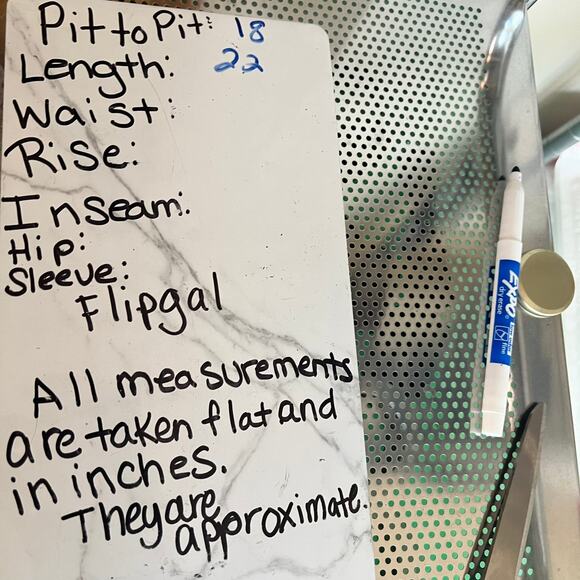 Pit to Pit: 18
Length: 22
Waist:
Rise:
Inseam:
Hip:
Sleeve:
Flipgal
All measurements
are taken flat and
in inches.
They are
approximate.
EXPO
dry erase
fine